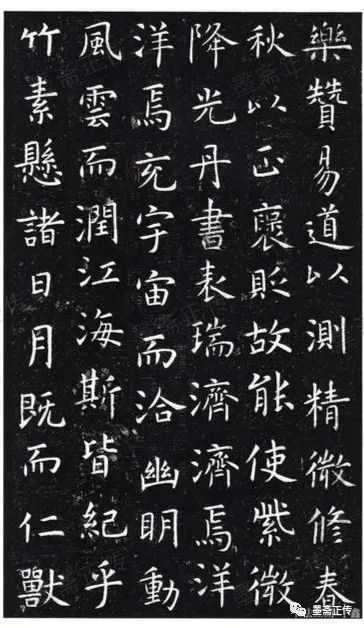 樂贊易道以測精微修春
秋以正褒貶故能使紫微
降光丹書表瑞濟濟焉洋
洋焉充宇宙而洽幽明動
風雲而潤江海斯皆紀乎
竹素懸諸日月既而仁獸
墨斋正传